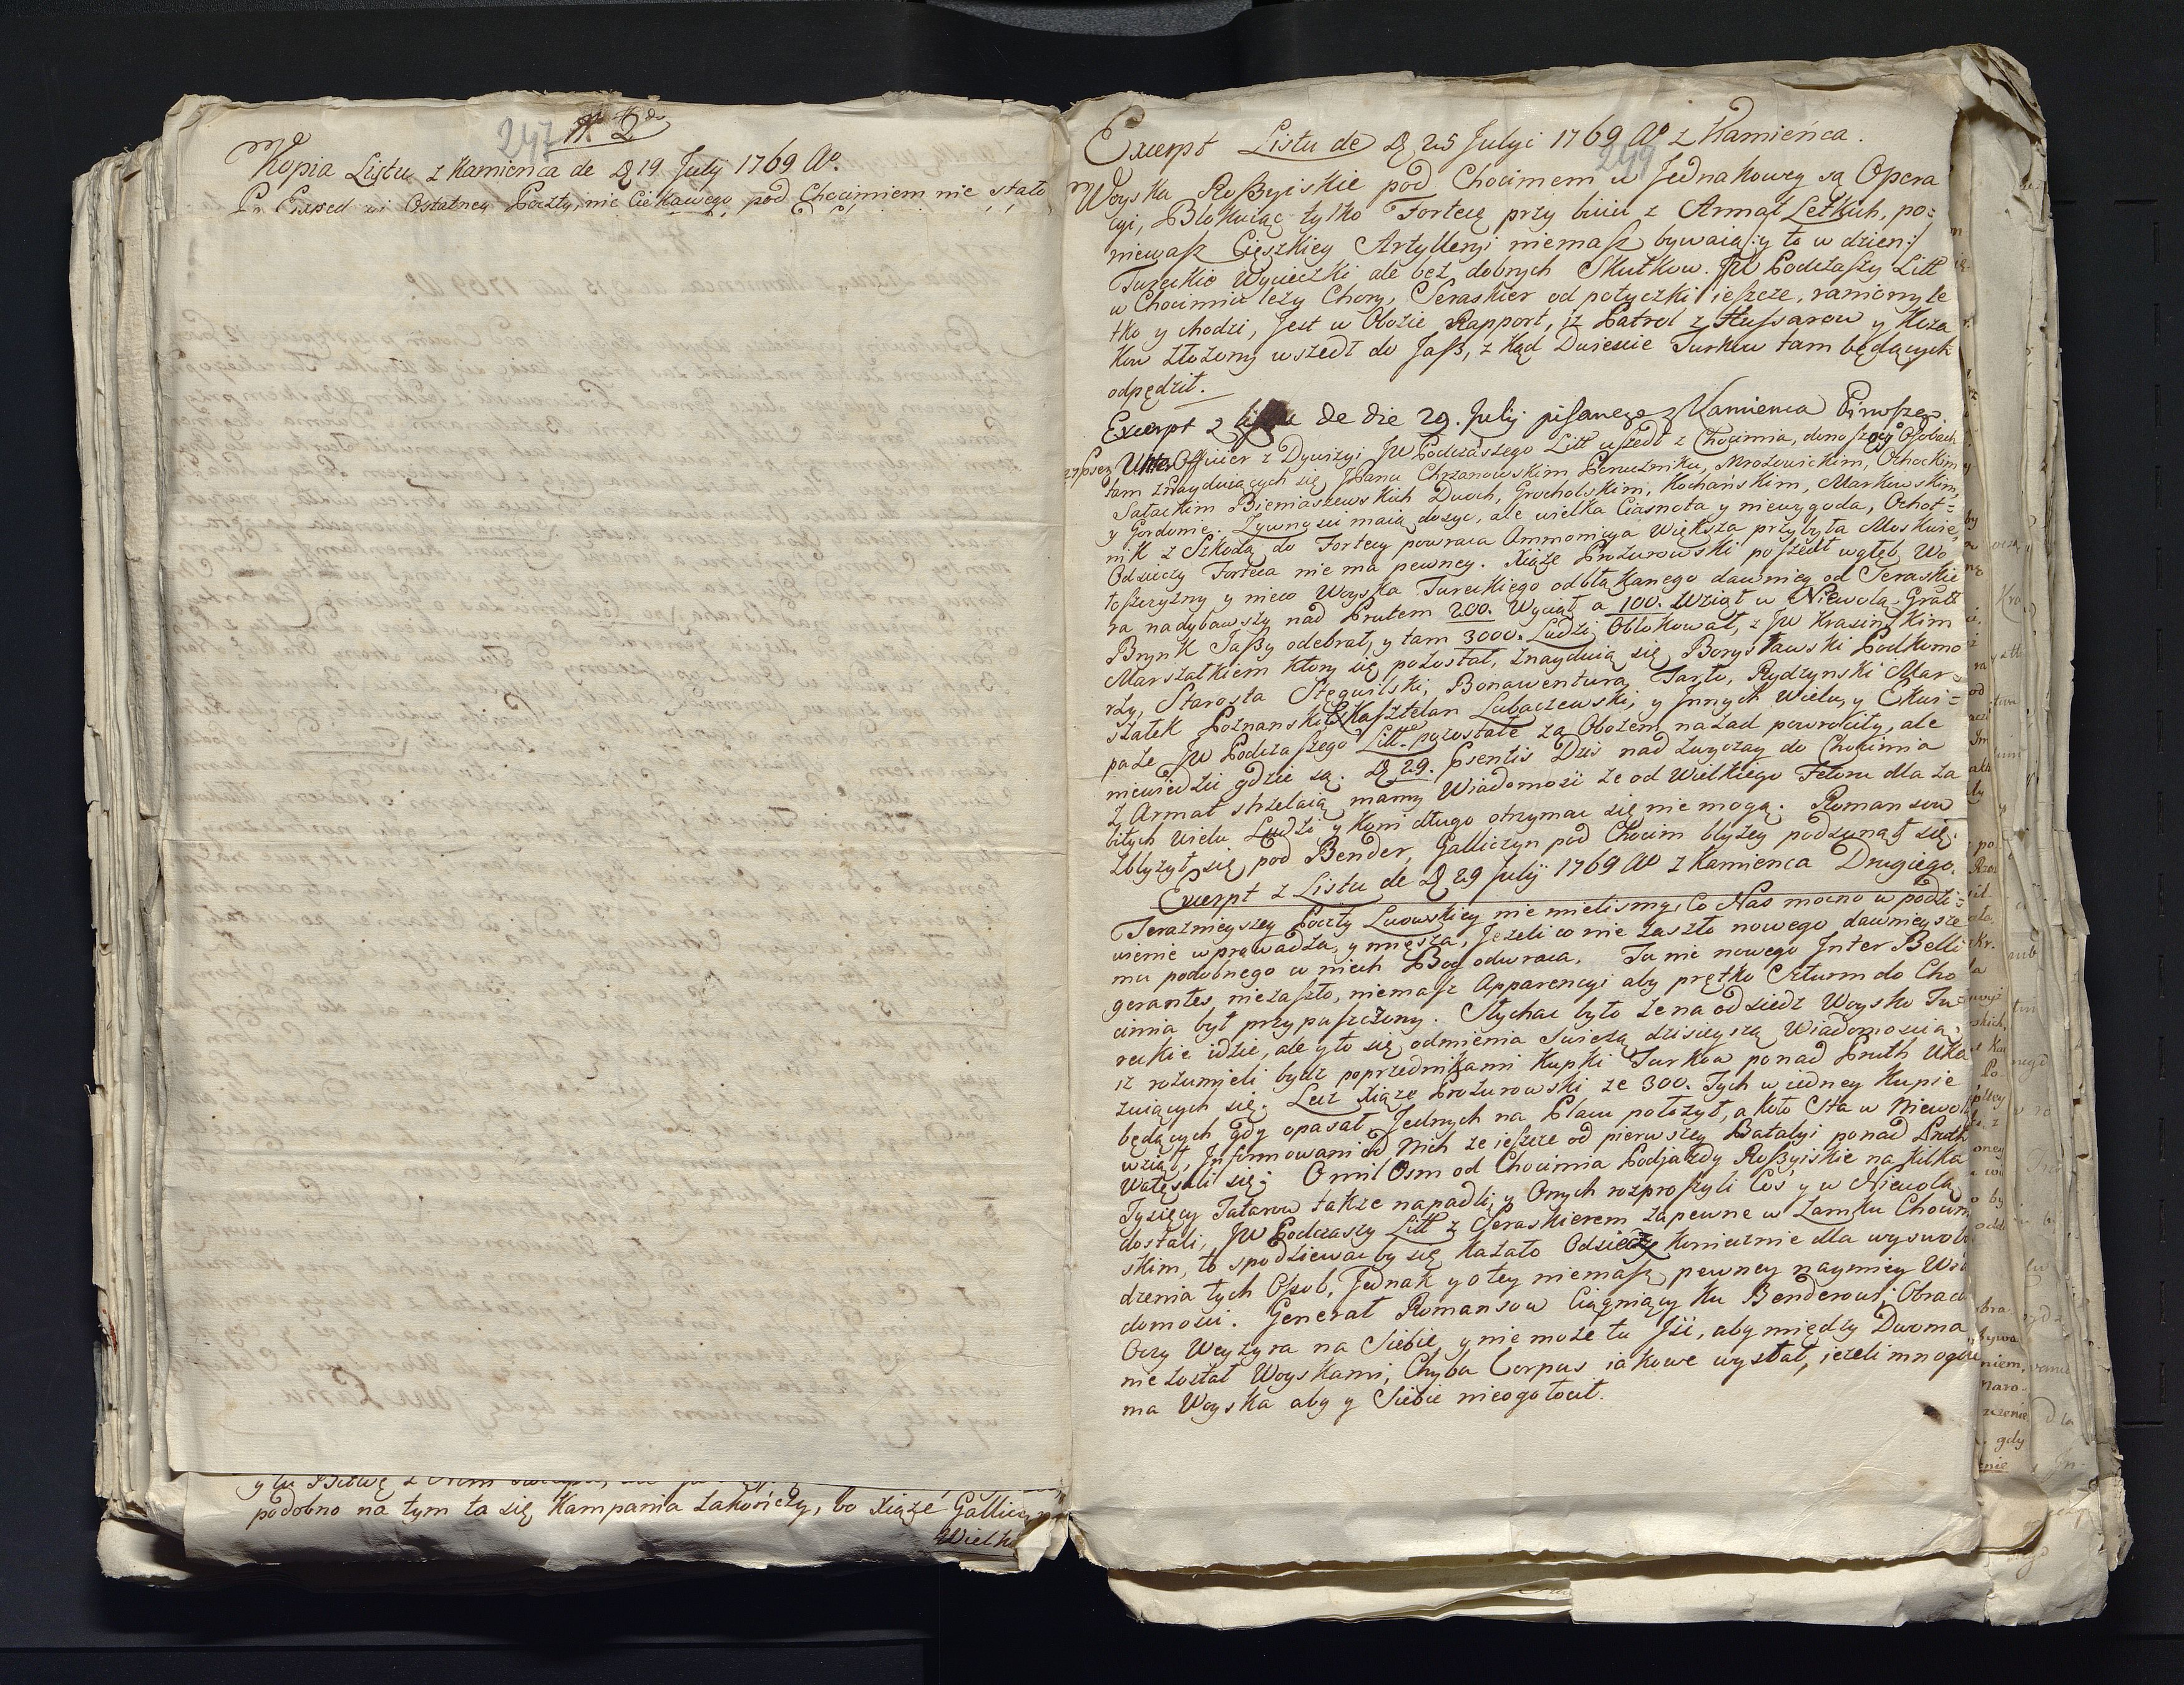 247 N 2do
Kopia Listu z Kamienca de D 19 Julij 1769 Ao.
Ostatney Poczty, nic Ciekawego pod Chocimiem nie stało
podobno na tym ta się Kampania zakończy, bo Xiąże Gallicz
Wielk
249
Excerpt Listu de D 25 Julyi 1769 Ao z Kamieńca.
Woyska Roßyiskie pod Chocimem w Jednakowey są Opera
cyi, Blokuiąc tylko Fortecę przy biciu z Armat Letkich, po=
niewasz Cięszkiey Artylleryi niemasz bywaią /:y to w dzien:/
Tureckie Wycieczki ale bez dobrych Skutkow. JW Podczaszy Litt
w Chocimiu leży Chory, Seraskier od potyczki ieszcze, raniony le
tko y chodzi, Jest w Obozie Rapport, iz Patrol z Hussarow y Koza
kow złożony wszedł do Jaß, z kąd Dwieście Turkow tam będących
odpędził.
Excerpt z Listu de die 29. Julij pisanego z Kamienca Pirwszego.
Unter Officier z Dywizyi JW Podczaszego Litt uszedł z Chocimia, donoszący o Osobach
tam znayduiących się, JPanu Chrzanowskim Poruczniku, Mrozowickim, Ochockim
Sałackim Bieniaszewskich Dwoch, Grocholskim, Kochańskim, Markowskim,
y Gordonie. Zywności maią dosyc, ale wielka Ciasnota y niewygoda, Ochot=
nik z Szkodą do Fortecy powraca Ammonicya Większa przybyła Moskwie,
Odsieczy Forteca nie ma pewney. Xiąże Prozorowski poszedł wgłęb Wo
łoszczyzny y nieco Woyska Tureckiego odbłąkanego dawniey od Seraskie
ra nadybawszy nad Prutem 200. Wyciął a 100. Wziął w Niewolą. Grałł
Brynk Jaßy odebrał, y tam 3000. Ludzi Oblokował, z JW Krasinskim
Marszałkiem ktory się pozostał, znayduią się Borysławski Podkomo
rzy, Starosta Stęgwilski, Bonawentura Tarło, Rydzynski Mar=
szałek Poznanski & Kasztelan Lubaczewski, y Innych Wielu, y Ekwi=
paże JW Podczaszego Litt. pozostałe za Obozem nazad powrociły, ale
niewiedzic gdzie są. D 29. Psentis Dziś nad zwyczay do Chocimia
z Armat strzelaią, mamy Wiadomość ze od Wielkiego Fetoru dla za
bitych wielu Ludzi y Koni długo otrzymac się nie mogą. Romansow
zbliżył się pod Bender, Galliczyn pod Chocim blyżey podsunął się.
Excerpt z Listu de D 29 Julij 1769 Ao z Kamienca Drugiego.
Teraznieyszey Poczty Lwowskiey nie mielismy, Co Nas mocno w podzi=
wienie wprowadza, y miesza, Jezeli co nie zaszło nowego dawnieysze
mu podobnego w niech Bog odwraca. Tu nic nowego Inter Belli
gerantes, niezaszło, niemasz Apparencyi aby prętko Szturm do Cho
cimia był przypuszczony. Słychac było ze na odsiedz Woysko Tu=
reckie idzie, ale y to się odmienia Swieżą dzisieyszą Wiadomoscią,
iz rozumieli bydz poprzednikami Kupki Turkow ponad Pruth Uka
zuiących się. Lecz Xiąże Prozurowski ze 300. Tych w iedney Kupie
będących gdy opasał, Jednych na Placu położył, a koło Sta w Niewol
wziął, Informowani od Nich ze ieszcze od pierwszey Batalyi ponad Pruth
Wałęsali się. O mil Osm od Chocimia Podjazdy Roßyiskie na kilka
Tysięcy Tatarow takze napadli, y Onych rozproszyli Coś y w Niewolą
dostali, JW Podczaszy Litt z Seraskierem zapewne w Zamku Chocim
skim, to spodziewac by się kazało Odsieczy koniecznie dla wyswobo
dzenia tych Osob, Jednak y o tey niemasz pewney naymiey Wia
domości. General Romansow Ciągniący ku Benderowi, Obraca
Oczy Wezyra na Siebie, y nie może tu Iść, aby między Dwoma
nie został Woyskami, Chyba Corpus iakowe wysłał, ieżeli mnogie
ma Woyska aby y Siebie nieogołocił.